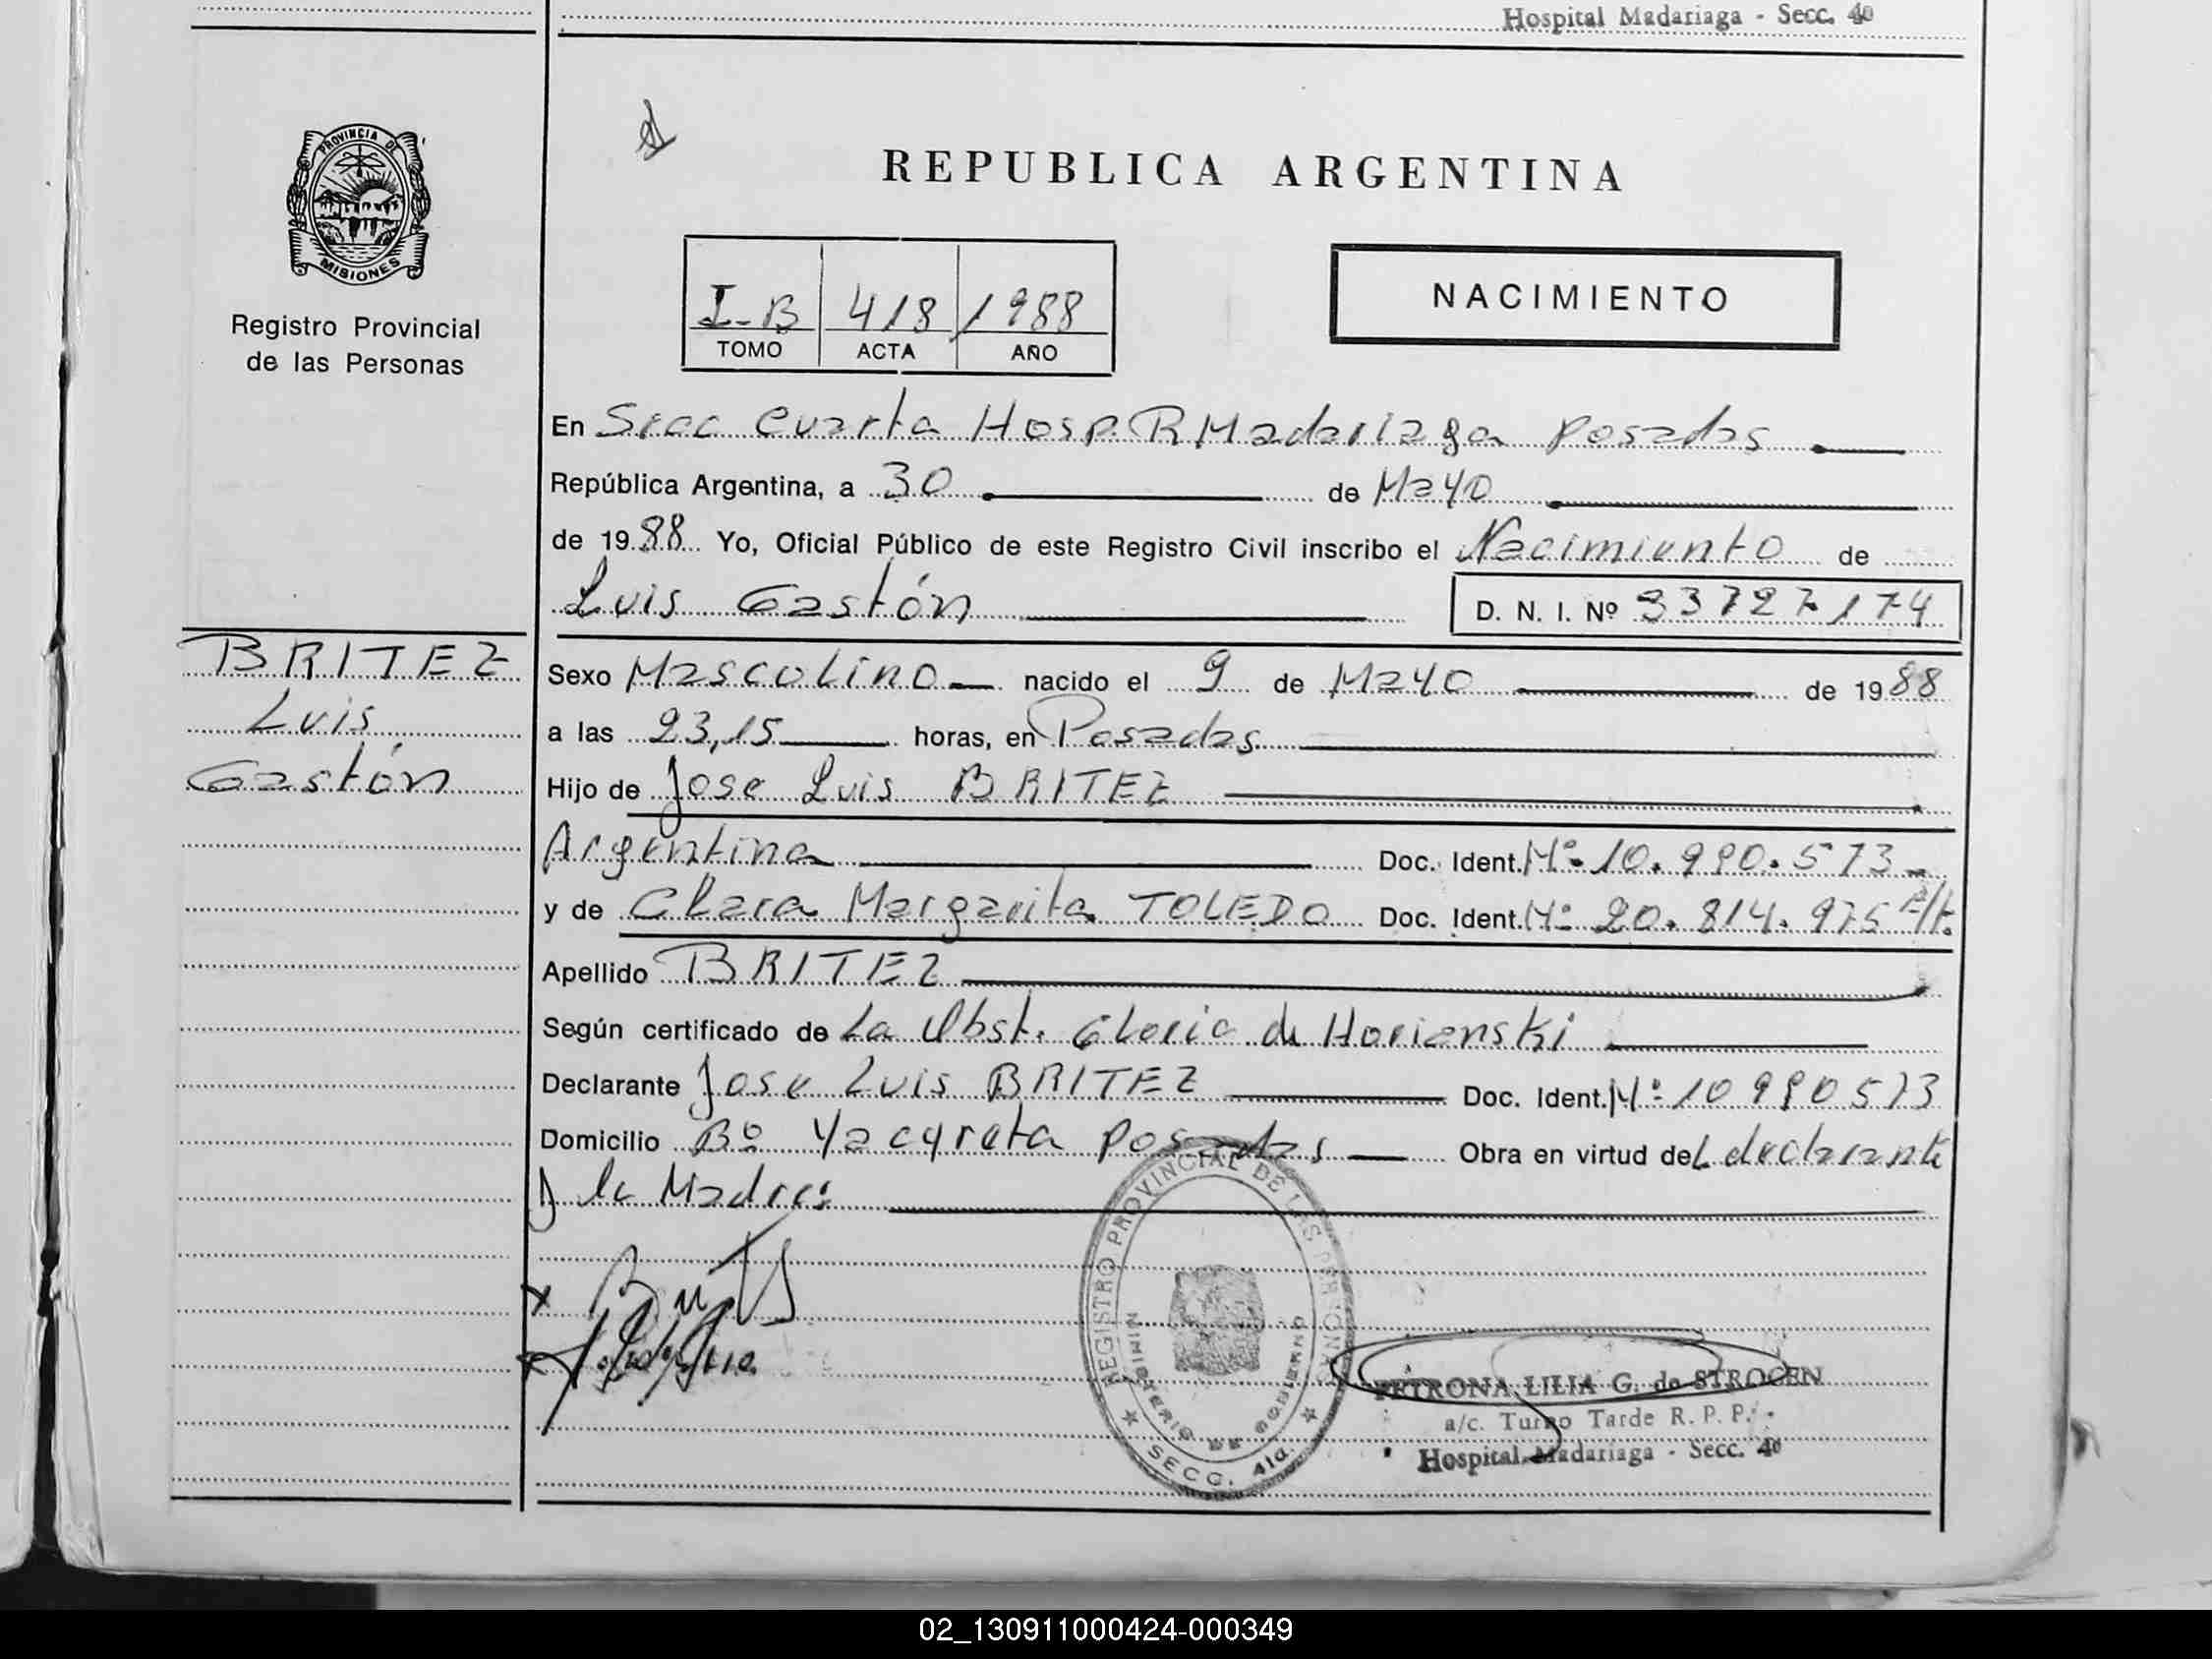 Hospital Madariaga - Secc. 4º
PROVINCIA DE
MISIONES
Registro Provincial
de las Personas
REPUBLICA ARGENTINA
I-B 418 1988
TOMO ACTA AÑO
NACIMIENTO
En Secc Cuarta Hosp. R Madariaga Posadas
República Argentina, a 30 de Mayo
de 1988 Yo, Oficial Público de este Registro Civil inscribo el Nacimiento de
Luis Gastón
D. N. I. Nº 33727174
BRITEZ
Luis
Gastón
Sexo Mascolino nacido el 9 de Mayo de 1988
a las 23,15 horas, en Posadas
Hijo de Jose Luis BRITEZ
Argentina Doc. Ident. Mº 10.990.573
y de Clara Margarita TOLEDO Doc. Ident. Mº 20.814.975
Apellido BRITEZ
Según certificado de La Obst. Gloria de Horianski
Declarante Jose Luis BRITEZ Doc. Ident. Mº 10990573
Domicilio Bº Yacyreta Posadas Obra en virtud del declarante
y la Madre
REGISTRO PROVINCIAL DE LAS PERSONAS
MINISTERIO DE GOBIERNO
SECC. 4ta.
PETRONA LILIA G. de STROGEN
a/c. Turno Tarde R. P. P.
Hospital Madariaga - Secc. 4º
02_130911000424-000349